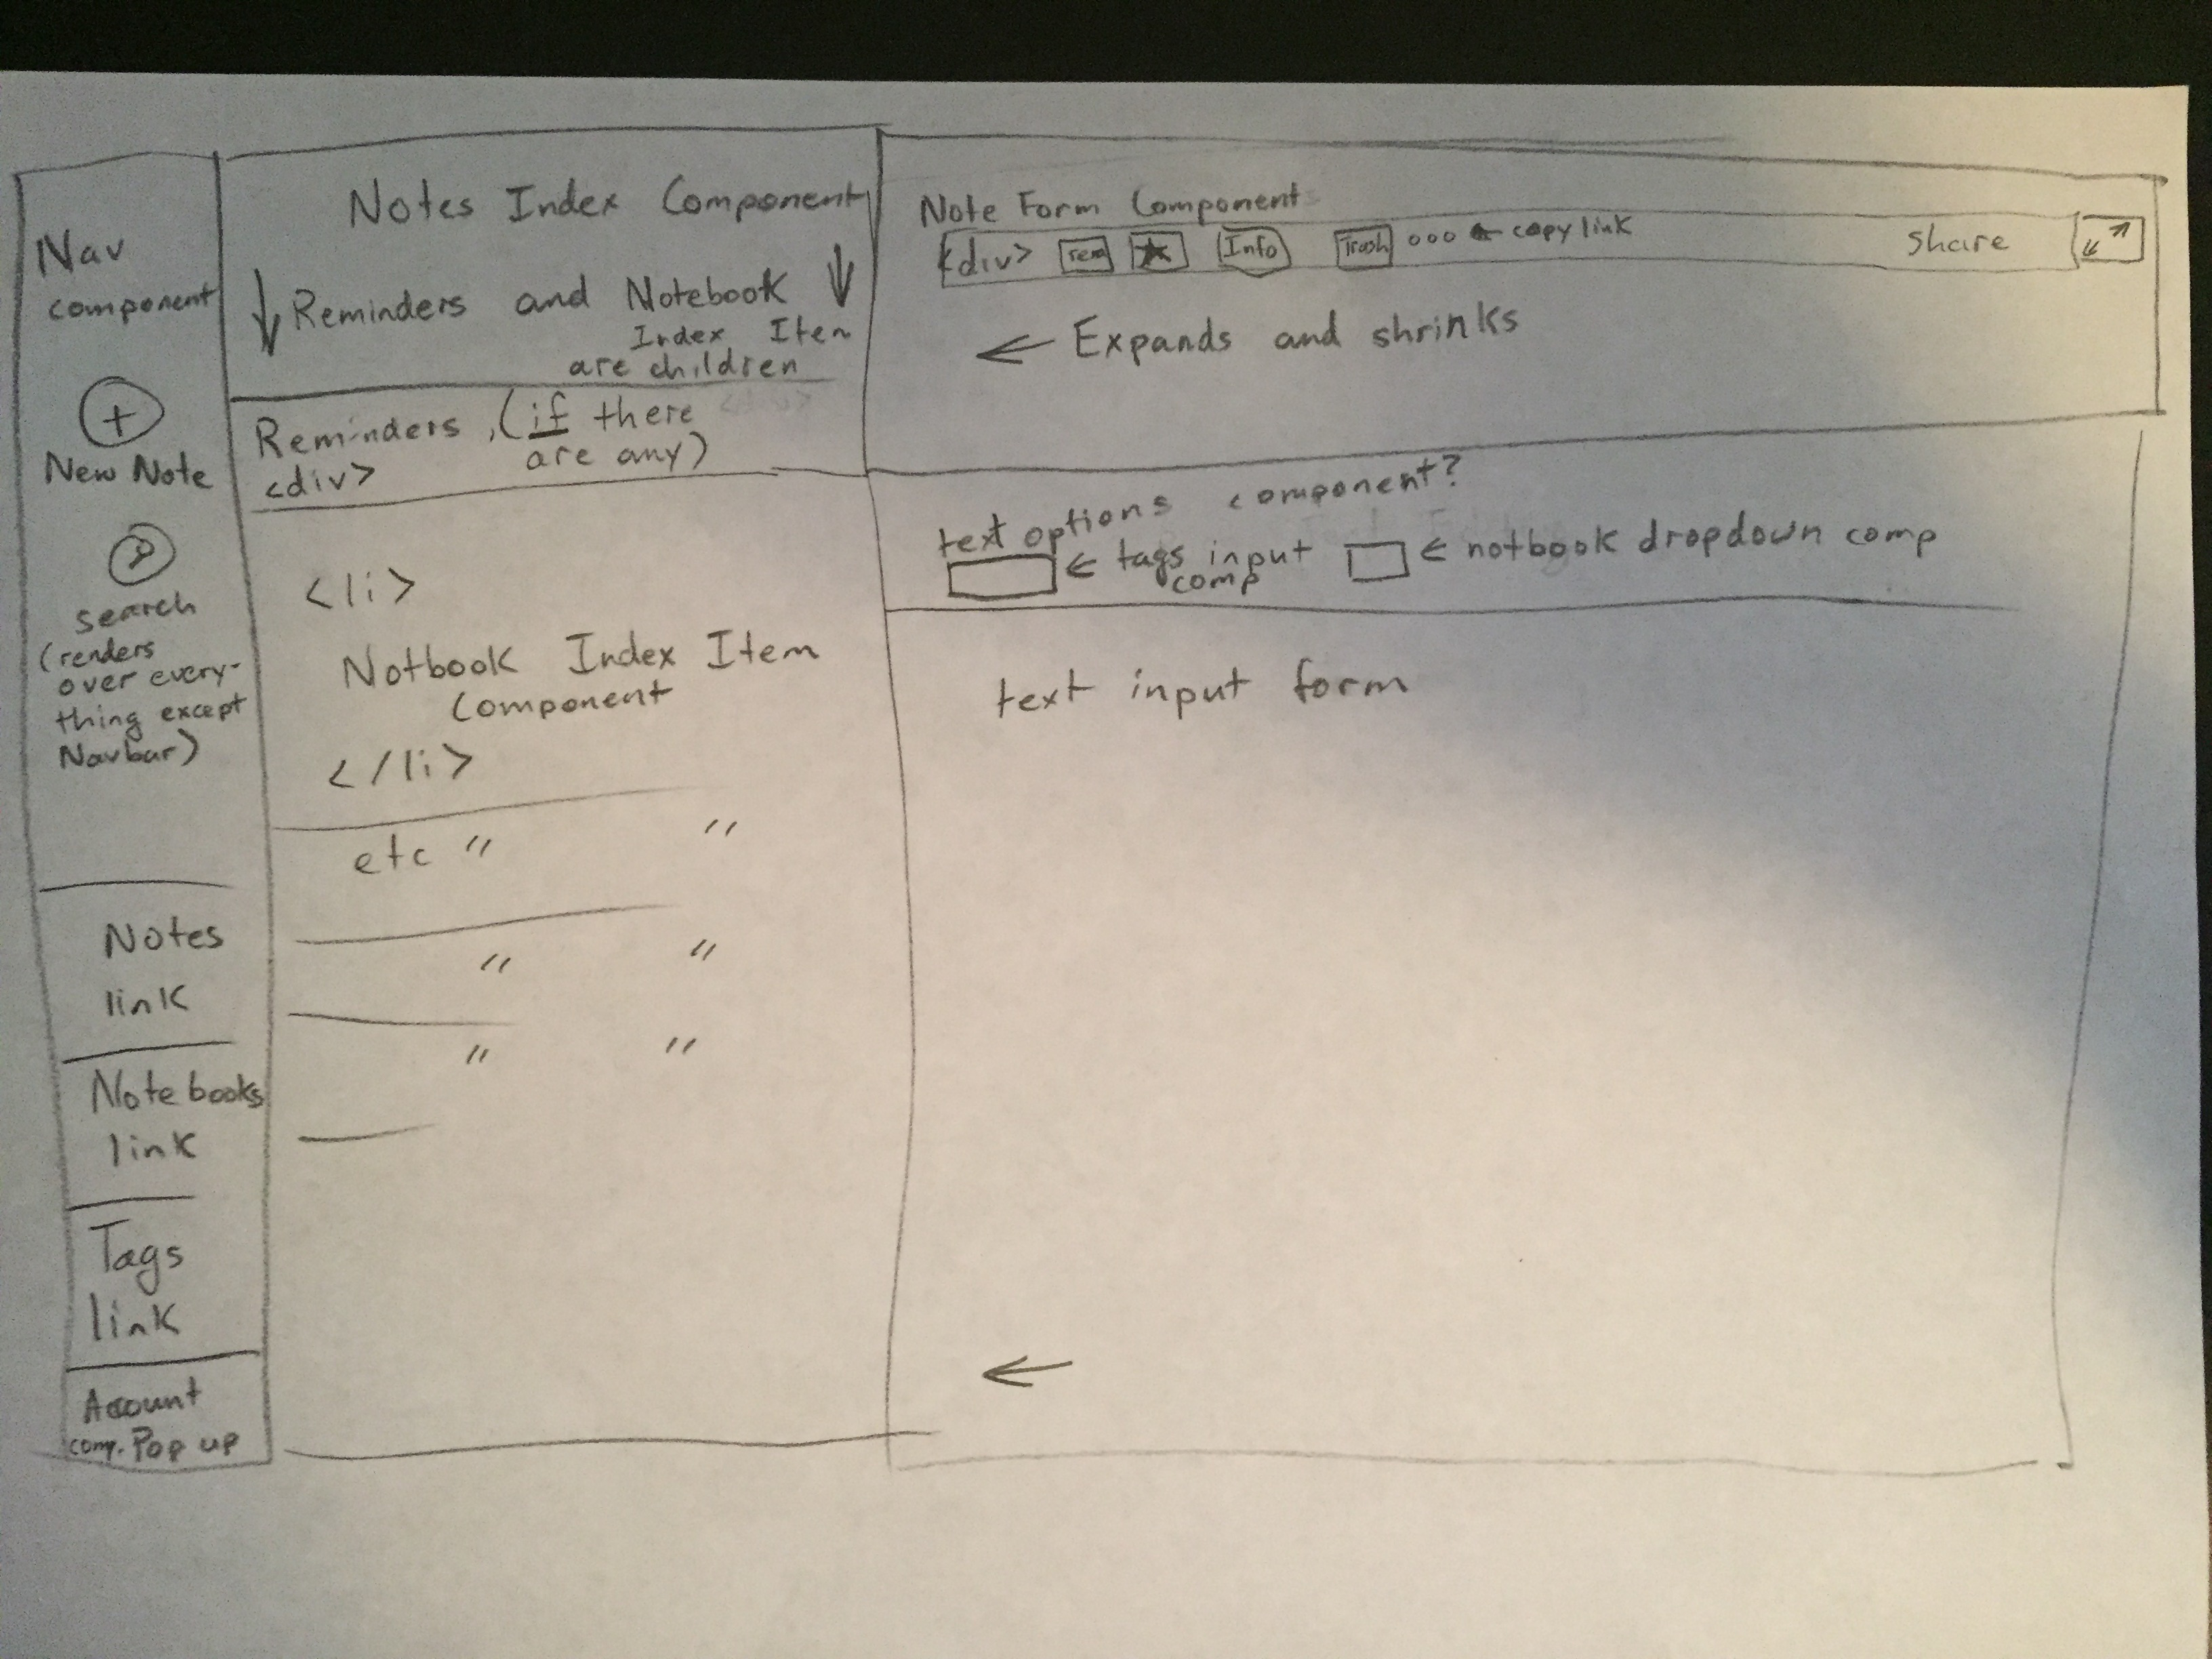 Nav
component
New Note
search
(renders
over every-
thing except
Navbar)
Notes
link
Notebooks
link
Tags
link
Account
comp. Pop up
Notes Index Component
Reminders and Notebook
Index Item
are children
Reminders, (if there
are any)
<div>
<li>
Notbook Index Item
Component
</li>
etc " "
" "
" "
Note Form Component
<div> rem Info Trash ooo ← copy link share
← Expands and shrinks
text options component?
← tags input
comp
← notbook dropdown comp
text input form